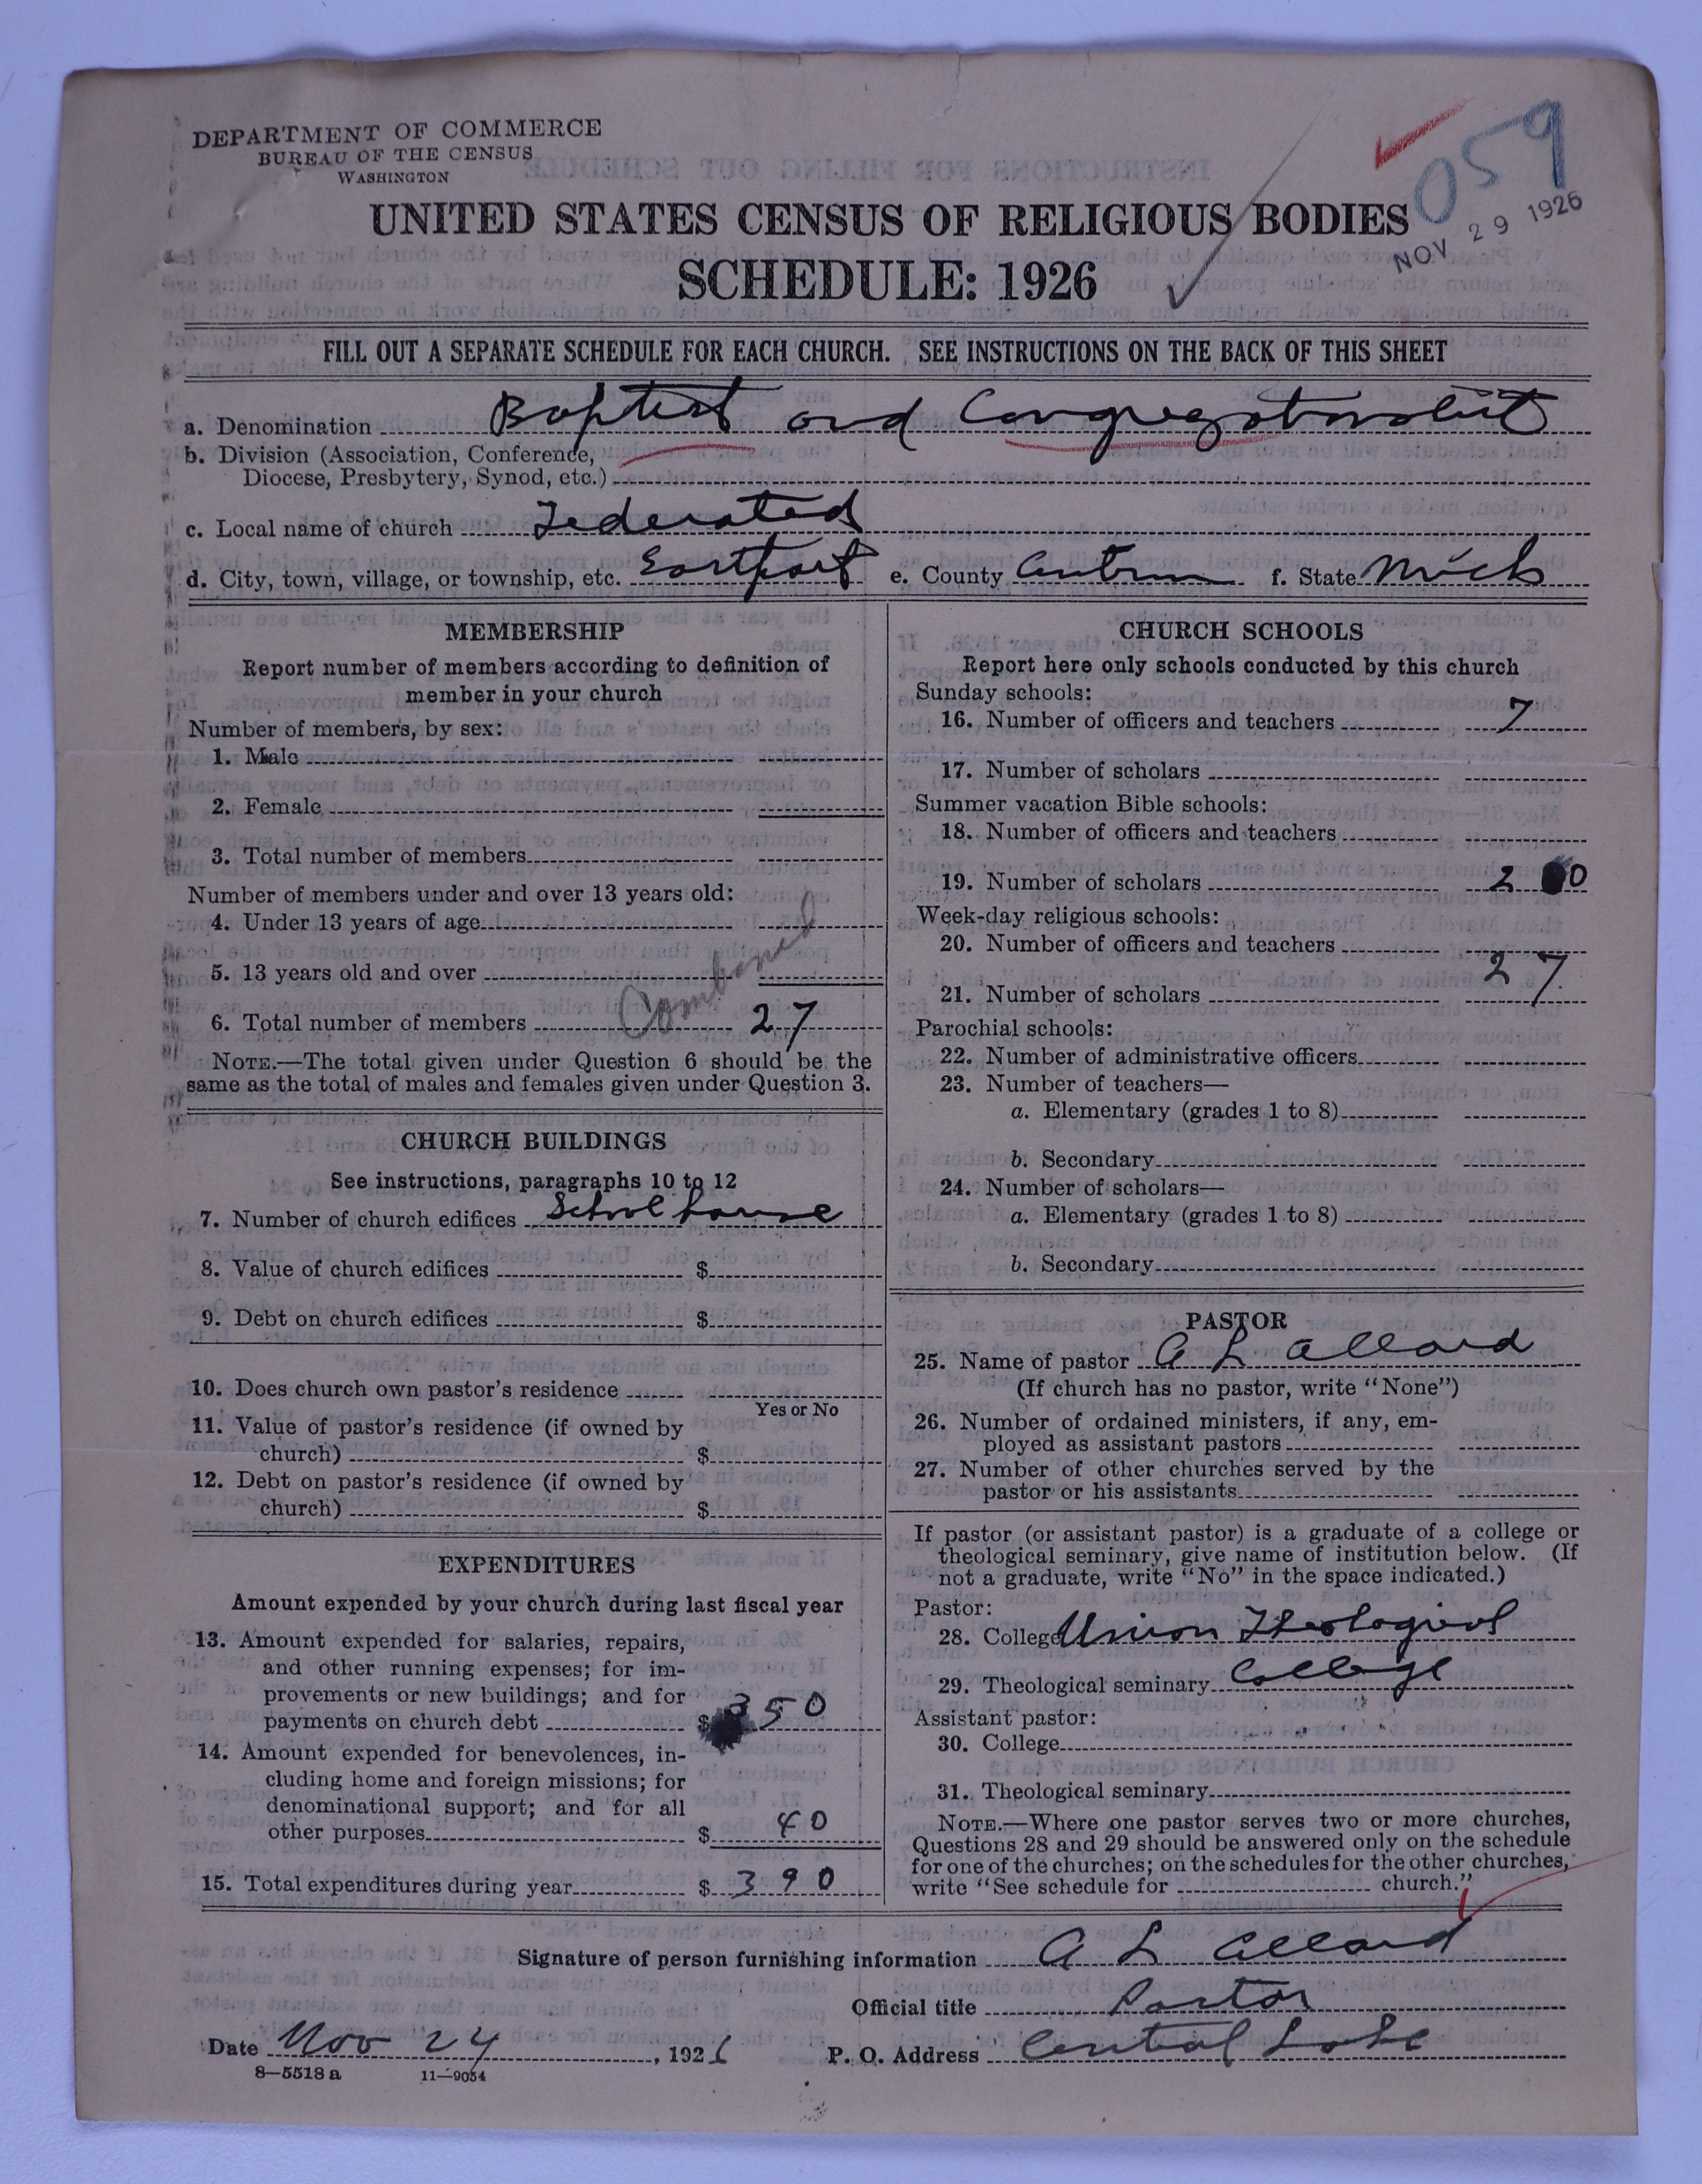 DEPARTMENT OF COMMERCE
BUREAU OF THE CENSUS
WASHINGTON
059
NOV 29 1926
UNITED STATES CENSUS OF RELIGIOUS BODIES
SCHEDULE: 1926
FILL OUT A SEPARATE SCHEDULE FOR EACH CHURCH. SEE INSTRUCTIONS ON THE BACK OF THIS SHEET
a. Denomination Baptist and Congregationalist
b. Division (Association, Conference,
Diocese, Presbytery, Synod, etc.)
c. Local name of church Federated
d. City, town, village, or township, etc. Eastport e. County Antrim f. State Mich
MEMBERSHIP
Report number of members according to definition of
member in your church
Number of members, by sex:
1. Male
2. Female
3. Total number of members
Number of members under and over 13 years old:
4. Under 13 years of age
5. 13 years old and over
6. Total number of members Combined 27
NOTE.—The total given under Question 6 should be the
same as the total of males and females given under Question 3.
CHURCH BUILDINGS
See instructions, paragraphs 10 to 12
7. Number of church edifices School house
8. Value of church edifices $
9. Debt on church edifices $
10. Does church own pastor's residence
Yes or No
11. Value of pastor's residence (if owned by
church) $
12. Debt on pastor's residence (if owned by
church) $
EXPENDITURES
Amount expended by your church during last fiscal year
13. Amount expended for salaries, repairs,
and other running expenses; for im-
provements or new buildings; and for
payments on church debt $ 350
14. Amount expended for benevolences, in-
cluding home and foreign missions; for
denominational support; and for all
other purposes $ 40
15. Total expenditures during year $ 390
CHURCH SCHOOLS
Report here only schools conducted by this church
Sunday schools:
16. Number of officers and teachers 7
17. Number of scholars
Summer vacation Bible schools:
18. Number of officers and teachers
19. Number of scholars
Week-day religious schools:
20. Number of officers and teachers
21. Number of scholars 27
Parochial schools:
22. Number of administrative officers
23. Number of teachers—
a. Elementary (grades 1 to 8)
b. Secondary
24. Number of scholars—
a. Elementary (grades 1 to 8)
b. Secondary
PASTOR
25. Name of pastor A L Allard
(If church has no pastor, write "None")
26. Number of ordained ministers, if any, em-
ployed as assistant pastors
27. Number of other churches served by the
pastor or his assistants
If pastor (or assistant pastor) is a graduate of a college or
theological seminary, give name of institution below. (If
not a graduate, write "No" in the space indicated.)
Pastor:
28. College Union Theological
29. Theological seminary College
Assistant pastor:
30. College
31. Theological seminary
NOTE.—Where one pastor serves two or more churches,
Questions 28 and 29 should be answered only on the schedule
for one of the churches; on the schedules for the other churches,
write "See schedule for church."
Signature of person furnishing information A L Allard
Official title Pastor
Date Nov 24, 1926 P. O. Address Central Lake
8—5518 a 11—9054